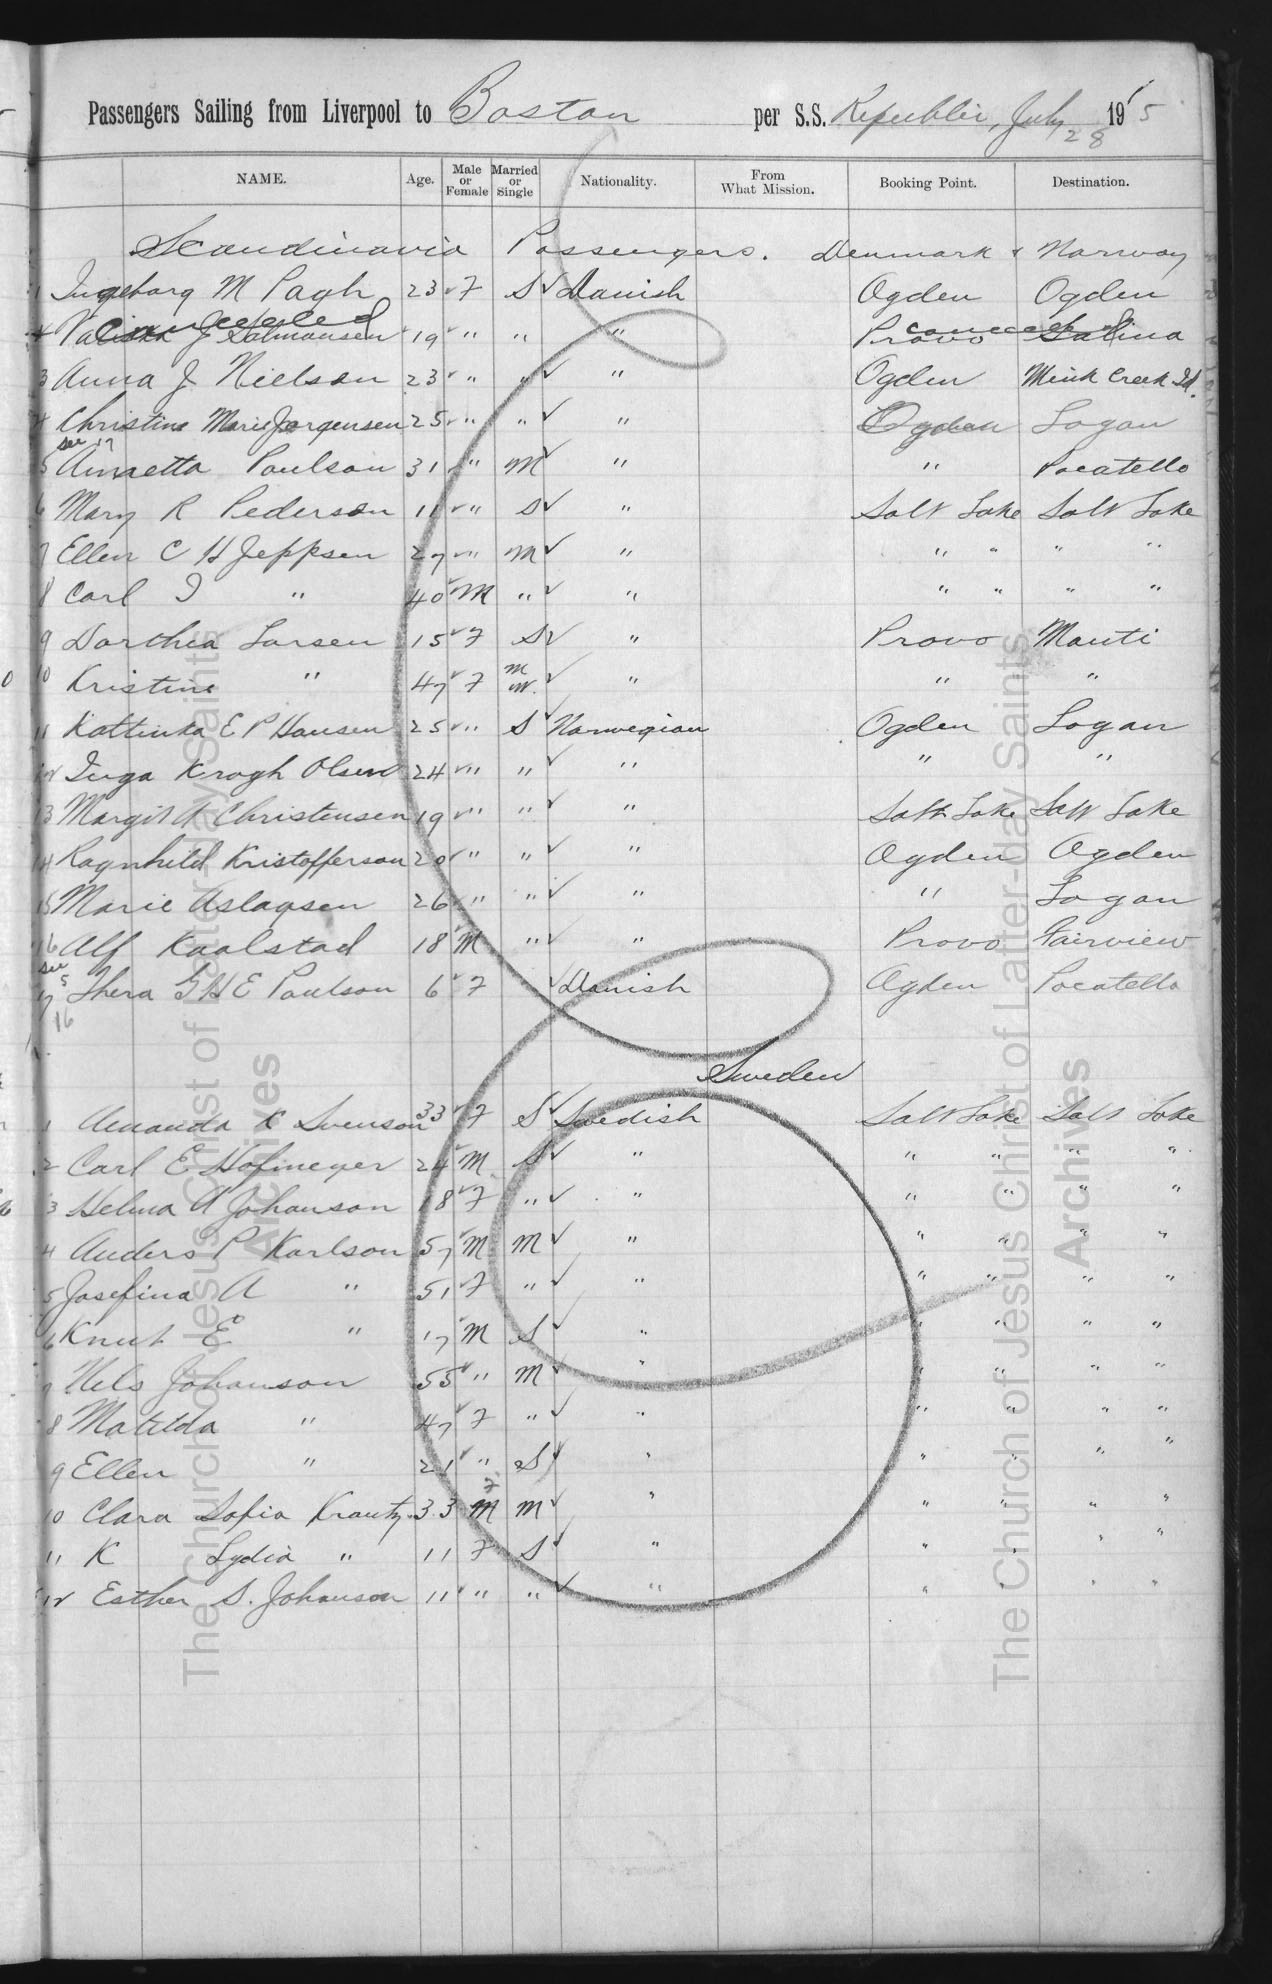 Passengers Sailing from Liverpool to Boston per S.S. Republic, July 28 1905
NAME. Age. Male or Female Married or Single Nationality. From What Mission. Booking Point. Destination.
Scandinavia Passengers. Denmark & Norway
1 Ingeborg M Pagh 23 F S Danish Ogden Ogden
cancelled cancelled
J Salmonsen 19 " " " Provo Salina
3 Anna J Nielson 23 " " " Ogden Mink Creek Id.
4 Christine Marie Jorgensen 25 " " " Ogden Logan
see 17
5 Annetta Poulson 31 " M " " Pocatello
6 Mary R Pederson 11 " S " Salt Lake Salt Lake
7 Ellen C H Jeppsen 27 " M " " " " "
8 Carl I " 40 M " " " " " "
9 Dorthea Larsen 15 F S " Provo Manti
10 Kristine " 47 F M W. " " "
11 Kattinka E P Hansen 25 " S Norwegian Ogden Logan
12 Inga Krogh Olsen 24 " " " " "
13 Margit A Christensen 19 " " " Salt Lake Salt Lake
14 Ragnhild Kristofferson 20 " " " Ogden Ogden
15 Marie Aslagsen 26 " " " " Logan
16 Alf Kaalstad 18 M " " Provo Fairview
see 5
17 Thera G H E Poulson 6 F Danish Ogden Pocatello
16
Sweden
1 Amanda K Svenson 33 F S Swedish Salt Lake Salt Lake
2 Carl E Hofmeyer 24 M S " " " " "
3 Helma A Johanson 18 F " " " " " "
4 Anders P Karlson 57 M M " " " " "
5 Josefina A " 51 F " " " " " "
6 Knut E " 17 M S " " " " "
7 Nels Johanson 55 " M " " " " "
8 Matilda " 47 F " " " " " "
9 Ellen " 21 " S " " " " "
10 Clara Sofia Krantz 33 F M M " " " " "
11 K Lydia " 11 F S " " " " "
12 Esther S. Johanson 11 " " " " " " "
The Church of Jesus Christ of Latter-day Saints
Archives
The Church of Jesus Christ of Latter-day Saints
Archives